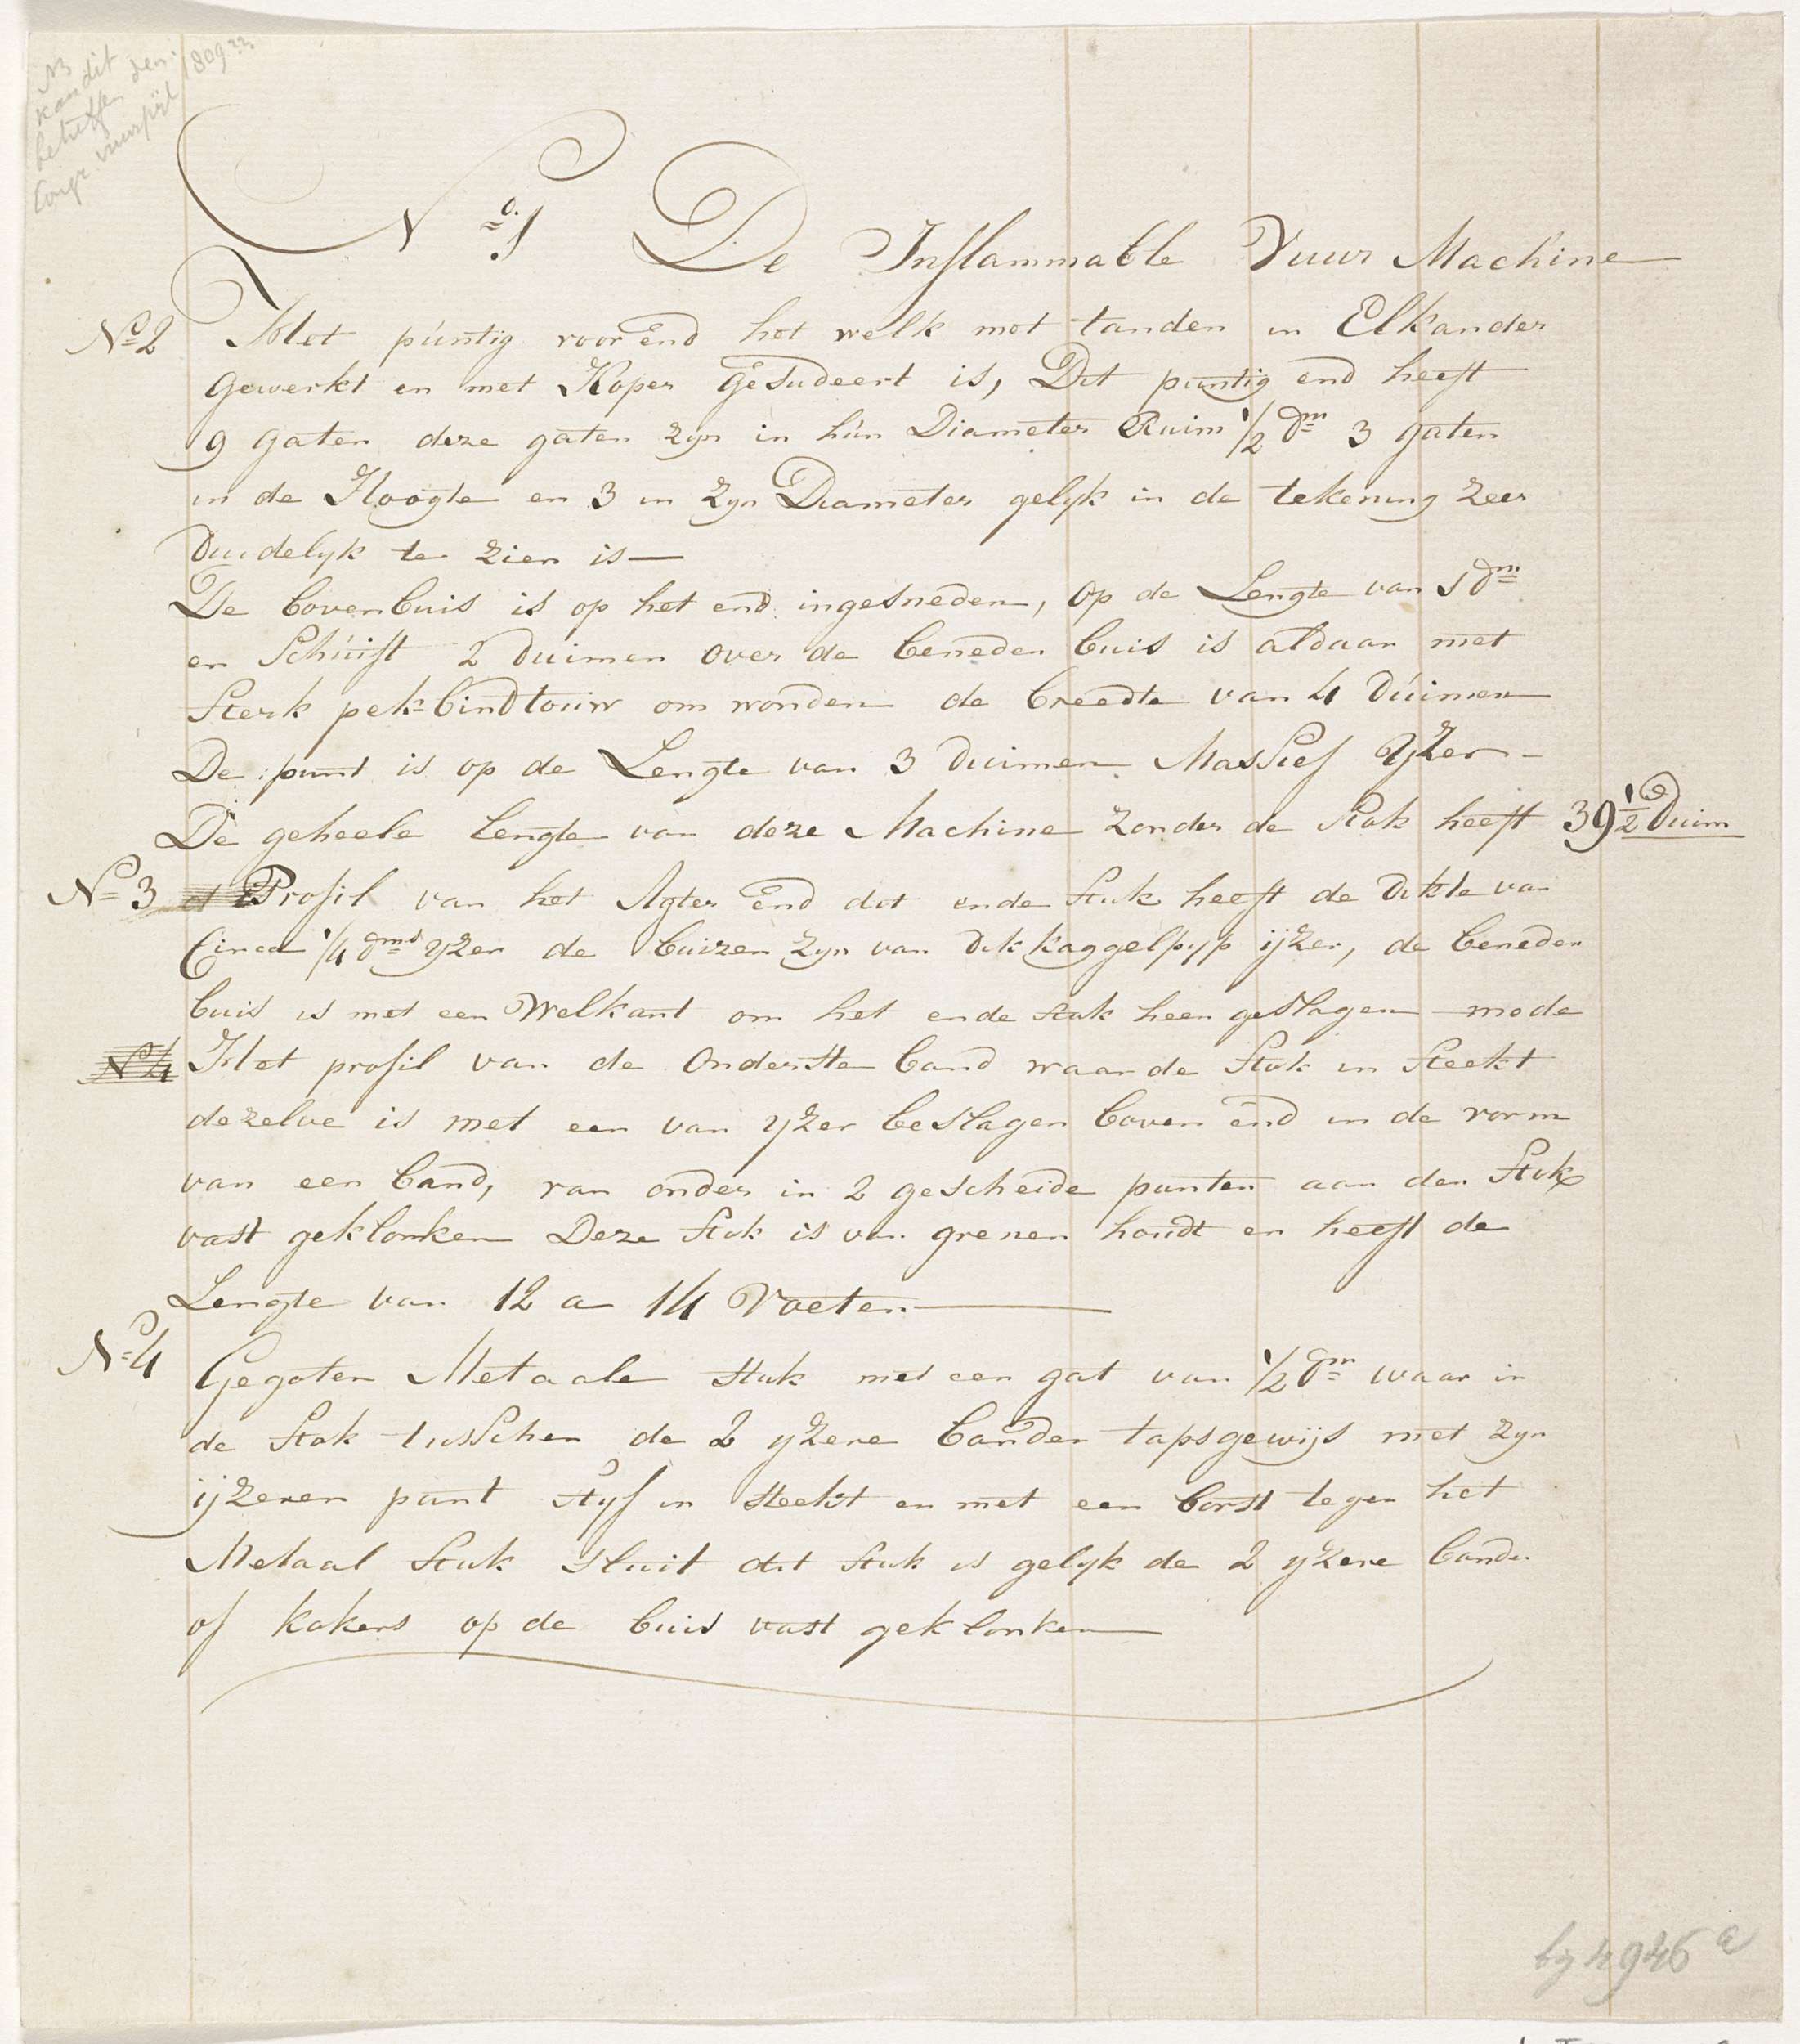 NB
kan dit
betreffen den
Congr. vuurpijl 1809??
No. 1 De Inflammable Vuur Machine
No 2 Het puntig voor End het welk met tanden in Elkander
gewerkt en met Koper Gesudeert is, Dit puntig end heeft
9 gaten deze gaten zyn in hun Diameter Ruim 1/2 dm 3 gaten
in de Hoogte en 3 in zyn Diameter gelyk in de tekening zeer
Duidelyk te zien is —
De bovenbuis is op het end ingesneden, op de Lengte van 1 dm
en Schuift 2 Duimen over de beneden buis is aldaar met
Sterk pek-bindtouw om wonden de breedte van 4 Duimen
De punt is op de Lengte van 3 Duimen Massief Yzer —
De geheele Lengte van deze Machine zonder de Stok heeft 39 1/2 Duim
No 3 Profil van het Agter End dit ende Stuk heeft de Dikte van
Circa 1/4 dms yzer de buizen zyn van Dik kaggelpyp ijzer, de beneden
buis is met een Welkant om het ende stuk heen geslagen — mede
No 4 Het profil van de Onderste band waar de Stok in Steekt
dezelve is met een van yzer beslagen boven end in de vorm
van een band, van onder in 2 gescheide punten aan den Stok
vast geklonken Deze Stok is van grenen houdt en heeft de
Lengte van 12 a 14 Voeten —
No 4 Gegoten Metaale Stuk met een gat van 1/2 dm waar in
de Stok tusschen de 2 yzere banden tapsgewijs met zyn
ijzeren punt styf in steekt en met een borst tegen het
Metaal Stuk sluit dit stuk is gelyk de 2 yzere bande
of kokers op de buis vast geklonken —
bij 4946 a